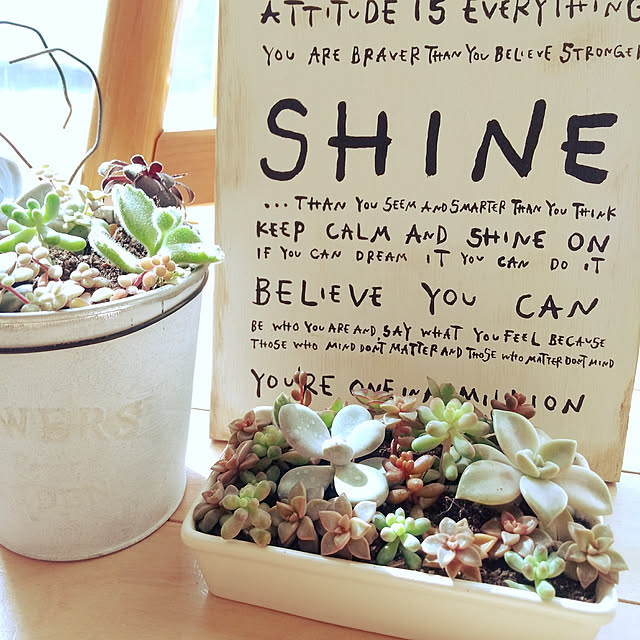 ATTITUDE IS EVERYTHING
YOU ARE BRAVER THAN YOU BELIEVE STRONGER
SHINE
... THAN YOU SEEM AND SMARTER THAN YOU THINK
KEEP CALM AND SHINE ON
IF YOU CAN DREAM IT YOU CAN DO IT
BELIEVE YOU CAN
BE WHO YOU ARE AND SAY WHAT YOU FEEL BECAUSE
THOSE WHO MIND DON'T MATTER AND THOSE WHO MATTER DON'T MIND
YOU'RE ONE IN A MILLION
WERS